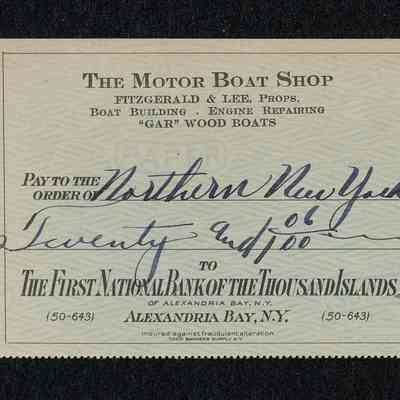 THE MOTOR BOAT SHOP
FITZGERALD & LEE, PROPS.
BOAT BUILDING - ENGINE REPAIRING
"GAR" WOOD BOATS
PAY TO THE
ORDER OF Northern New York
Twenty and 06/100
TO
THE FIRST NATIONAL BANK OF THE THOUSAND ISLANDS
OF ALEXANDRIA BAY, N.Y.
(50-643) ALEXANDRIA BAY, N.Y. (50-643)
insured against fraudulent alteration
TODD BANKERS SUPPLY N.Y.